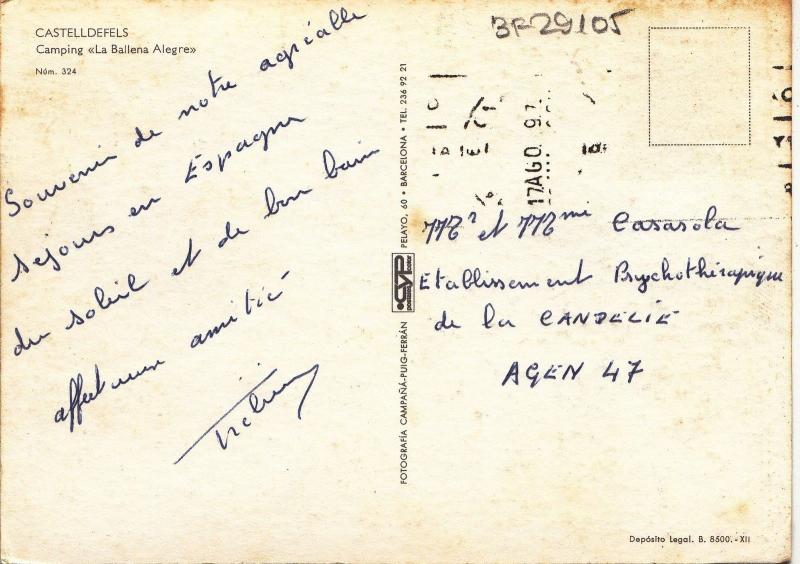 CASTELLDEFELS
Camping «La Ballena Alegre»
Núm. 324
BF-29105
17 AGO. 97
Souvenir de notre agréable
séjours en Espagne
du soleil et de bon bain
affectueuse amitié
FOTOGRAFÍA CAMPAÑÁ-PUIG-FERRÁN
CYP
PELAYO, 60 • BARCELONA • TEL. 236 92 21
Mr et Mme Casasola
Etablissement Psychothérapique
de la CANDELIE
AGEN 47
Depósito Legal. B. 8500.-XII